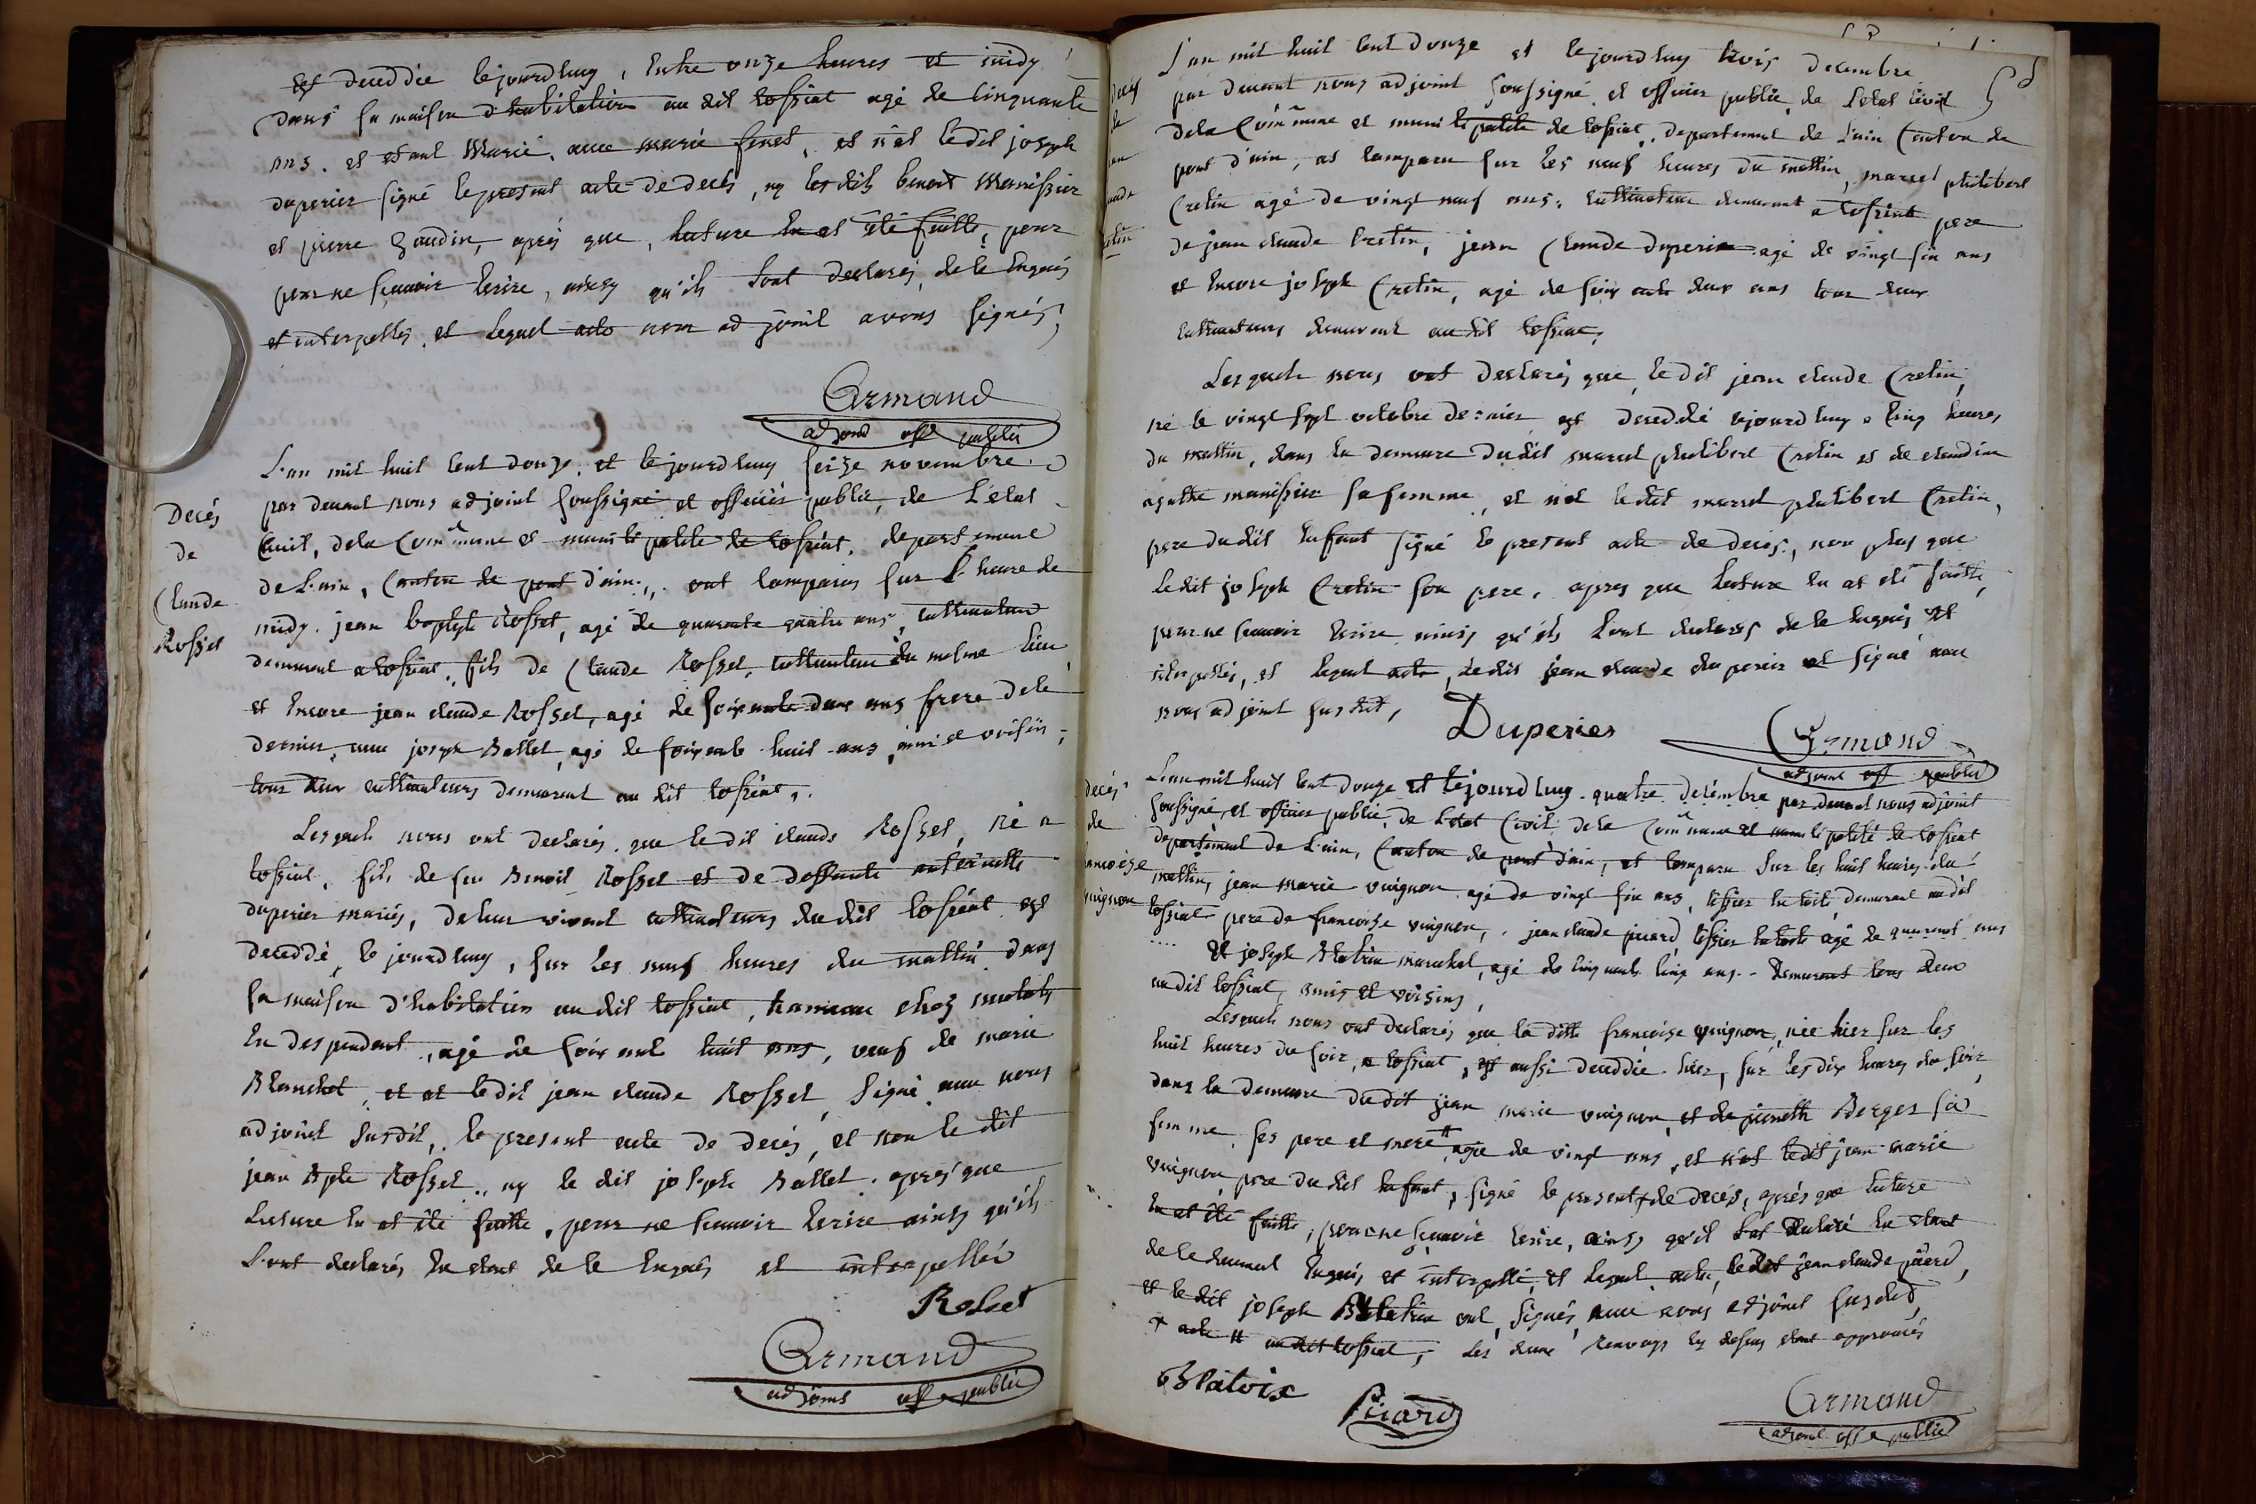 est deceddée lejourdhuy, entre onze heures et midy
dans sa maison d'habitation au dit tossiat agé de Cinquante
ans. et étant Marié, avec marie feret, et n'at le dit joseph
duperier signé le present acte de decés, ny les dits benoit Monissier
et pierre Gaudin, aprés que, lecture en at été faitte, pour
pour ne scavoir écrire, ainsy qu'ils l'ont declarés, de le Enquis
et interpellés, et Lequel acte nou adjoint avons signés,
Armand
adjoint off publié
Decés
de
Claude
Rosset
L'an mil huit cent douze, et le jourdhuy seize novembre
par devant nous adjoint soussigné et officiér public, de L'etat
Civil, de la Commune et municipalité de tossiat, departement
de L'ain, Canton de pont d'ain, ont Comparus sur L'heure de
midy. jean baptiste Rosset, agé de quarante quatre ans, Cultivateur
demeurant a tossiat, fils de Claude Rosset, Cultivateur du mesme lieu,
et Encore jean claude Rosset, agé de soixante deux ans frere de le
dernier, avec joseph Ballet, agé de soixante huit ans, ami et voisin,
tous deux cultivateurs demeurant au dit tossiat,.
Lesquels nous ont declarés que le dit claude Rosset, né a
tossiat, fils de feu Benoit Rosset et de deffunte antoinette
duperier mariés, de leur vivant cultivateurs du dit tossiat est
deceddé, le jourdhuy, sur les neuf heures du mattin dans
sa maison d'habitation au dit tossiat, hameau chez
En despendant, agé de soixante huit ans, veuf de marie
Blanchet, et at le dit jean claude Rosset, signé avec nous
adjoint susdit, le present acte de decés, et non le dit
jean Bpte Rosset, ny le dit joseph Ballet. aprés que
Lecture En at été faitte, pour ne scavoir écrire ainsy qu'ils
L'ont declarés En étant de le Enquis et interpellés
Rosset
Armand
adjoint off publié
L'an mil huit cent douze et le jourdhuy trois decembre
par devant nous adjoint soussigné et officier public, de L'etat civil
de la Commune et municipalité de tossiat, departement de L'ain Canton de
pont d'ain, at Comparu sur les neuf heures du mattin, marcel philibert
Cretin agé de vingt neuf ans, cultivateur demeurant a tossiat pere
de jean claude Cretin, jean Claude duperier agé de vingt six ans
et Encore joseph Cretin, agé de soixante deux ans tous deux
cultivateurs demeurant au dit tossiat,
Lesquels nous ont declarés que, le dit jean claude Cretin,
né le vingt sept octobre dernier est deceddé ajourdhuy a Cinq heures
du mattin, dans la demeure du dit marcel philibert Cretin et de claudine
agathe monissier sa femme, et n'at le dit marcel philibert Cretin,
pere du dit Enfant signé le present acte de decés, non plus que
le dit joseph Cretin son pere, apres que lecture En at été faitte,
pour ne scavoir écrire ainsy qu'ils L'ont declarés de le Enquis et
interpellés, et lequel acte, le dit jean claude duperier at signé avec
nous adjoint susdit,
Duperier
Armand
adjoint off publié
decés
de
francoise
vuignon
L'an mil huit cent douze et le jourdhuy quatre decembre par devant nous adjoint
soussigné et officier public, de L'etat Civil, de la Commune et municipalité de tossiat
departement de L'ain, Canton de pont d'ain, at Comparu sur les huit heures du
mattin, jean marie vuignon agé de vingt six ans, tissier en toile, demeurant audit
tossiat pere de francoise vuignon, jean claude picard, tissier en toile agé de quarant ans
et joseph Blatrix marechal, agé de Cinquante Cinq ans. demeurant tous deux
au dit tossiat, amis et voisins,
Lesquels nous ont declarés que la ditte francoise vuignon, née hier sur les
huit heures du soir, a tossiat, est aussi deceddée hier, sur les dix heures du soir
dans la demeure du dit jean marie vuignon, et de pierrette Berger sa
femme, ses pere et mere # agée de vingt ans, et n'at le dit jean marie
vuignon pere du dit Enfant, signé le present + de decés, aprés que lecture
En at été faitte, pour ne scavoir écrire, ainsy qu'il L'at declaré En étant
de le deument Enquis, et interpellé, et lequel acte, le dit jean claude picard,
et le dit joseph Blatrix ont signés, avec nous adjoint susdit,
+ acte # audit tossiat, Les deux Renvoys cy dessus étant approuvés
Blatrix
Picard
Armand
adjoint off publié